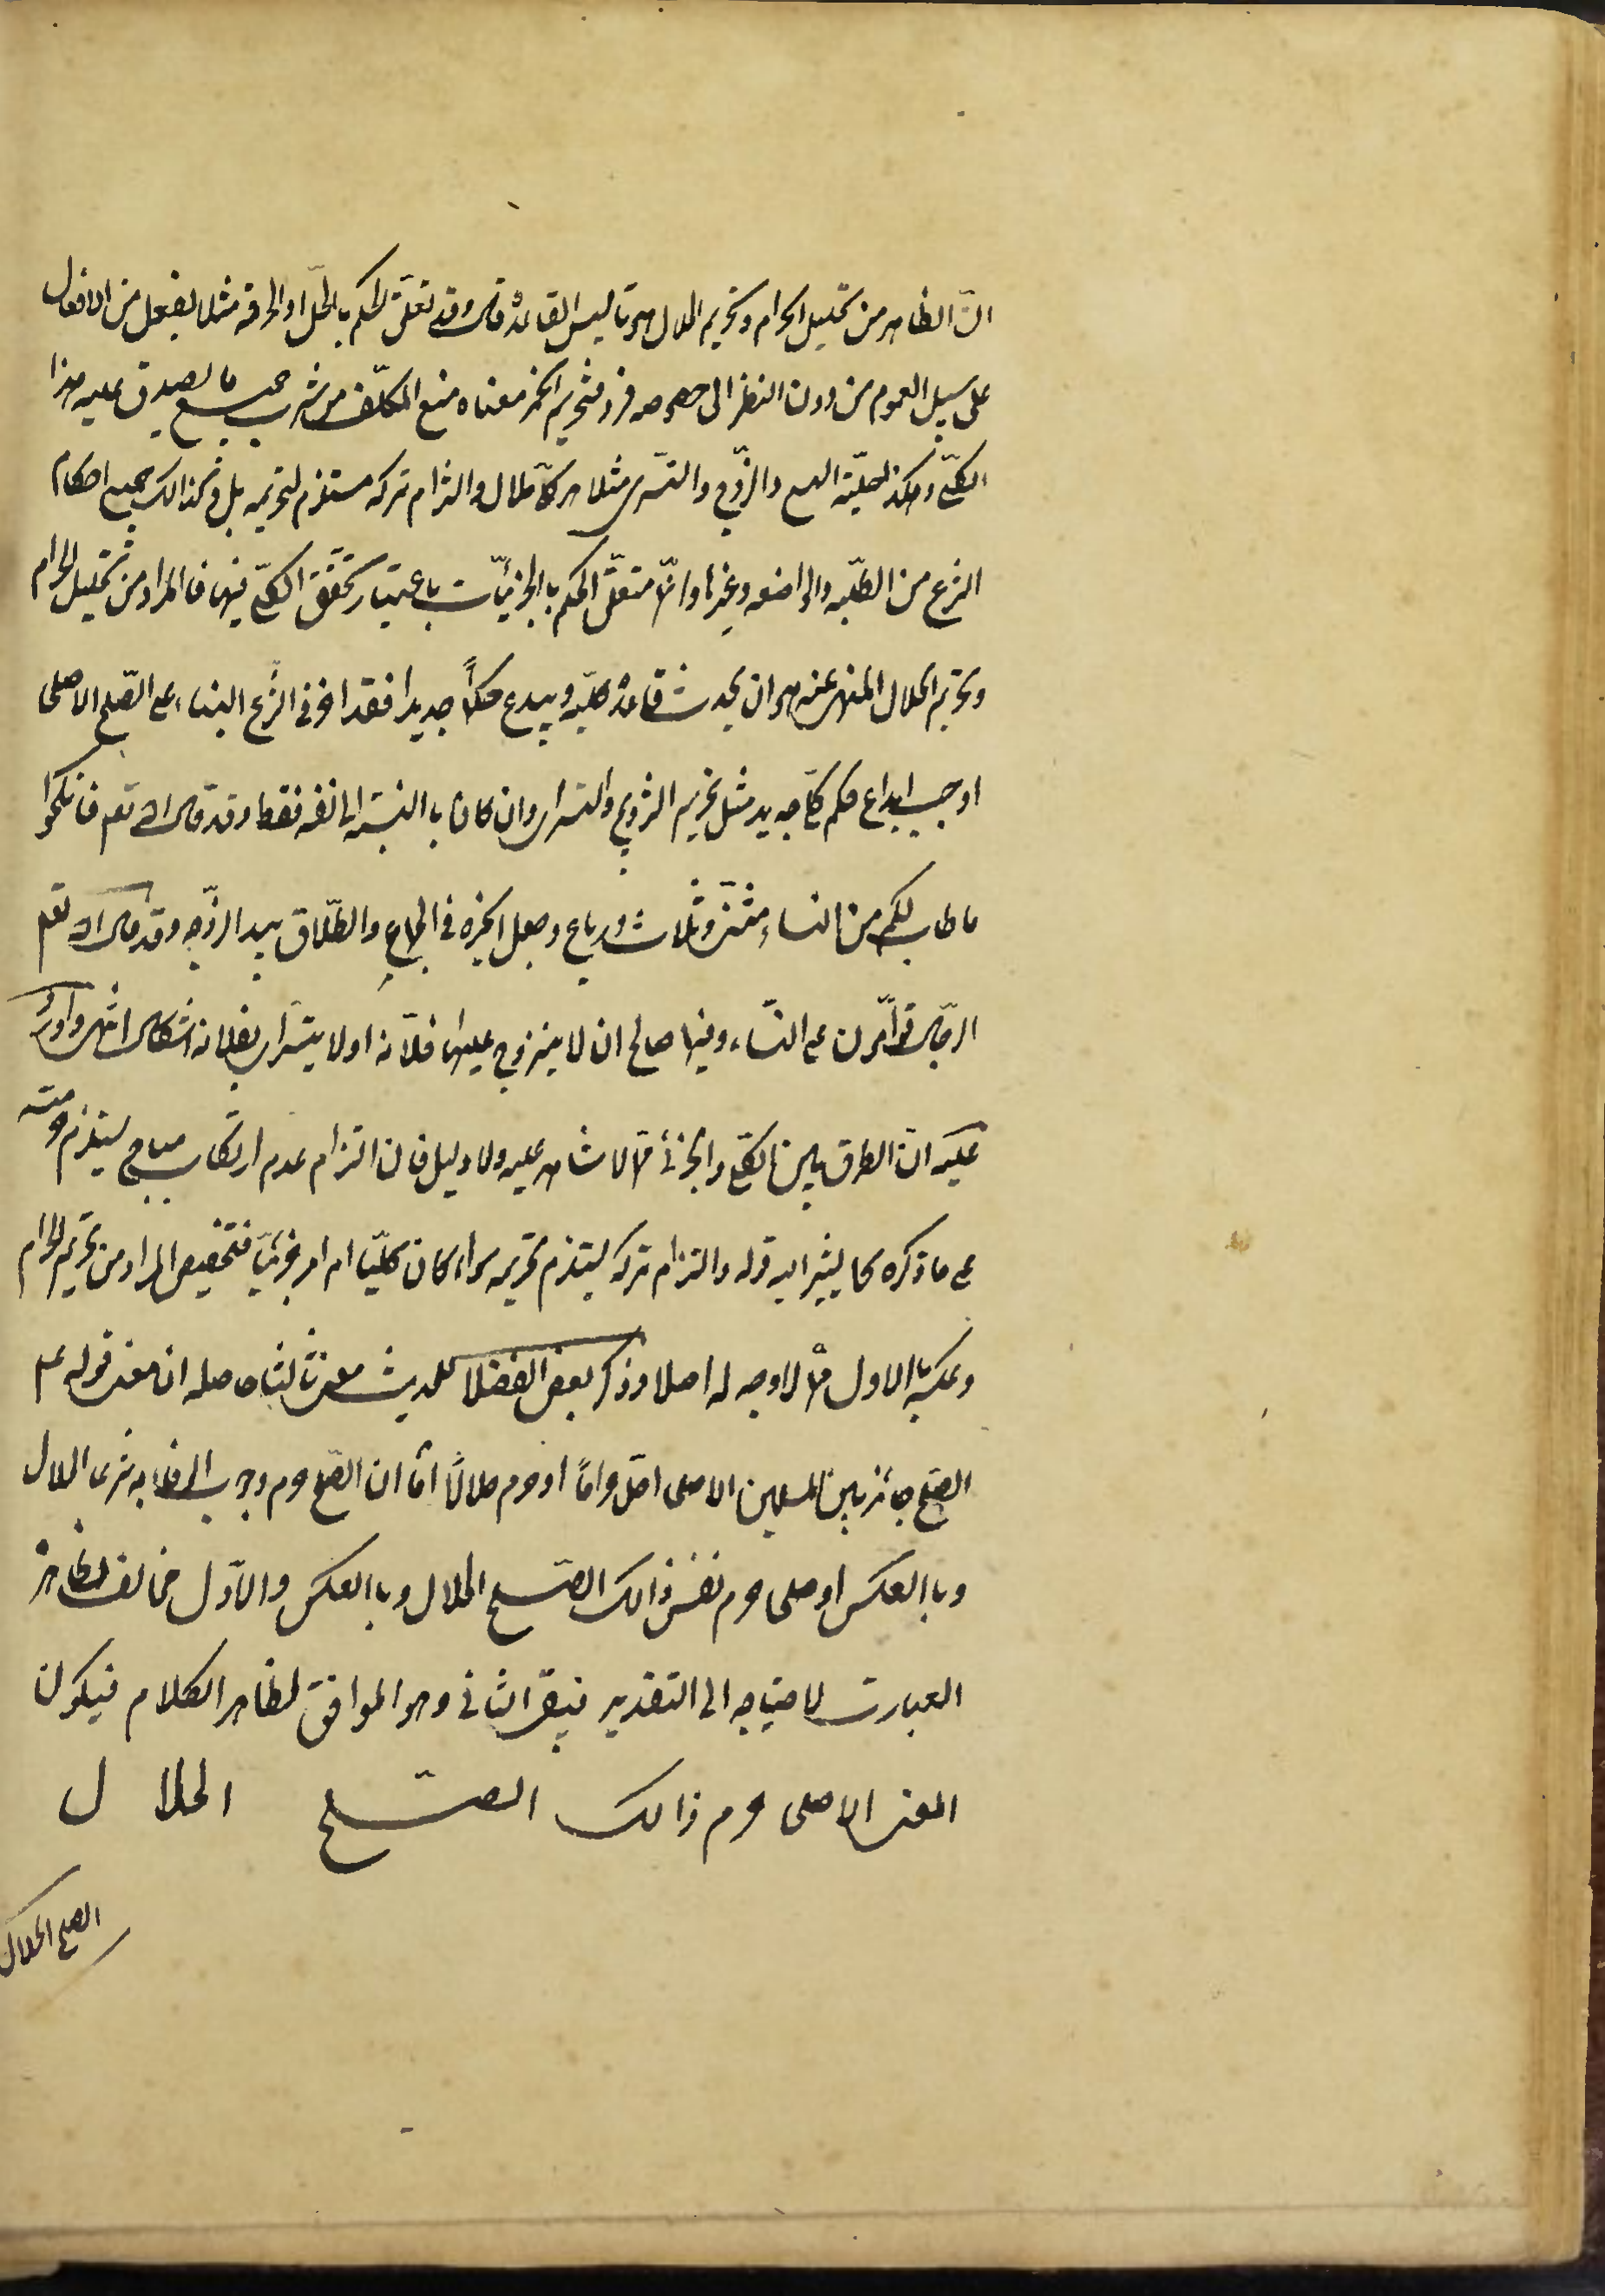 ان الظاهر من تحليل الحرام وتحريم الحلال هو تاسيس القاعدة قال وقد تعلق الحكم بالحل او الحرمة مثلا بفعل من الافعال
على سبيل العموم من دون النظر الى خصوصه فرد فتحريم الخمر معناه منع المكلف من شرب جميع ما يصدق عليه هذا
الكلّي وهكذا حلية البيع والتزوج والتسرى مثلا امر كلّى حلال والتزام تركه مستلزم لتحريمه بل وكذالك جميع احكام
الشرع من الطلبيه والواضعه وغيرها وانما متعلق الحكم بالجزئيّات باعتبار تحقق الكلّي فيها فالمراد من تحليل الحرام
وتحريم الحلال المنهى عنه هو ان يحدث قاعدة كليّه ويبدع حكماً جديدا فقد اخر فى الشرع البناء على الصّلح الاصلى
اوجب ابداع حكم كلّي جديد مثل تحريم التزوج والتسرى وان كان بالنسبة الى نفسه فقط وقد قال الله تعم فانكحوا
ما طاب لكم من النساء مثنى وثلاث ورباع وجعل الخيره فى الجماع والطّلاق بيد الزّوج وقد قال الله تعم
الرجال قوّامون على النّساء وفيما صالح ان لا يتزوج عليها فلانة او لا يتسرى بفلانه اشكال انتهى واورد
عليه ان الفرق بين الكلّي والجزئى ممّا لا شاهد عليه ولا دليل فان التزام عدم ارتكاب مباح يستلزم حرمته
على ما ذكره كما يشير اليه قوله والتزام تركه يستلزم تحريمه سواء كان كليّا ام امر جزئيّا فتخصيص المراد من تحريم الحرام
وعكسه بالاول ممّا لا وجه له اصلا وذكر بعض الفضلا للحديث معنى ثالثا حاصله ان معنى قوله عم
الصّلح جائز بين المسلمين الا صلحا احل حراماً او حرم حلالاً امّا ان الصّلح حرم وجوب الوفاء به شرعا الحلال
وبالعكس او صلحى حرم نفس ذالك الصّلح الحلال وبالعكس والاوّل مخالف لظاهر
العبارت لاحتياجه الى التقدير فيبقى الثانى وهو الموافق لظاهر الكلام فيكون
المعنى الا صلحى حرم ذالك الصّلح الحلال
الصلح الحلال